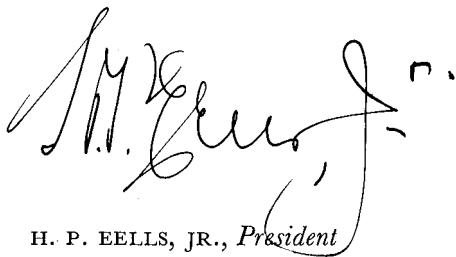 H. P. Eells, Jr.
H. P. EELLS, JR., President